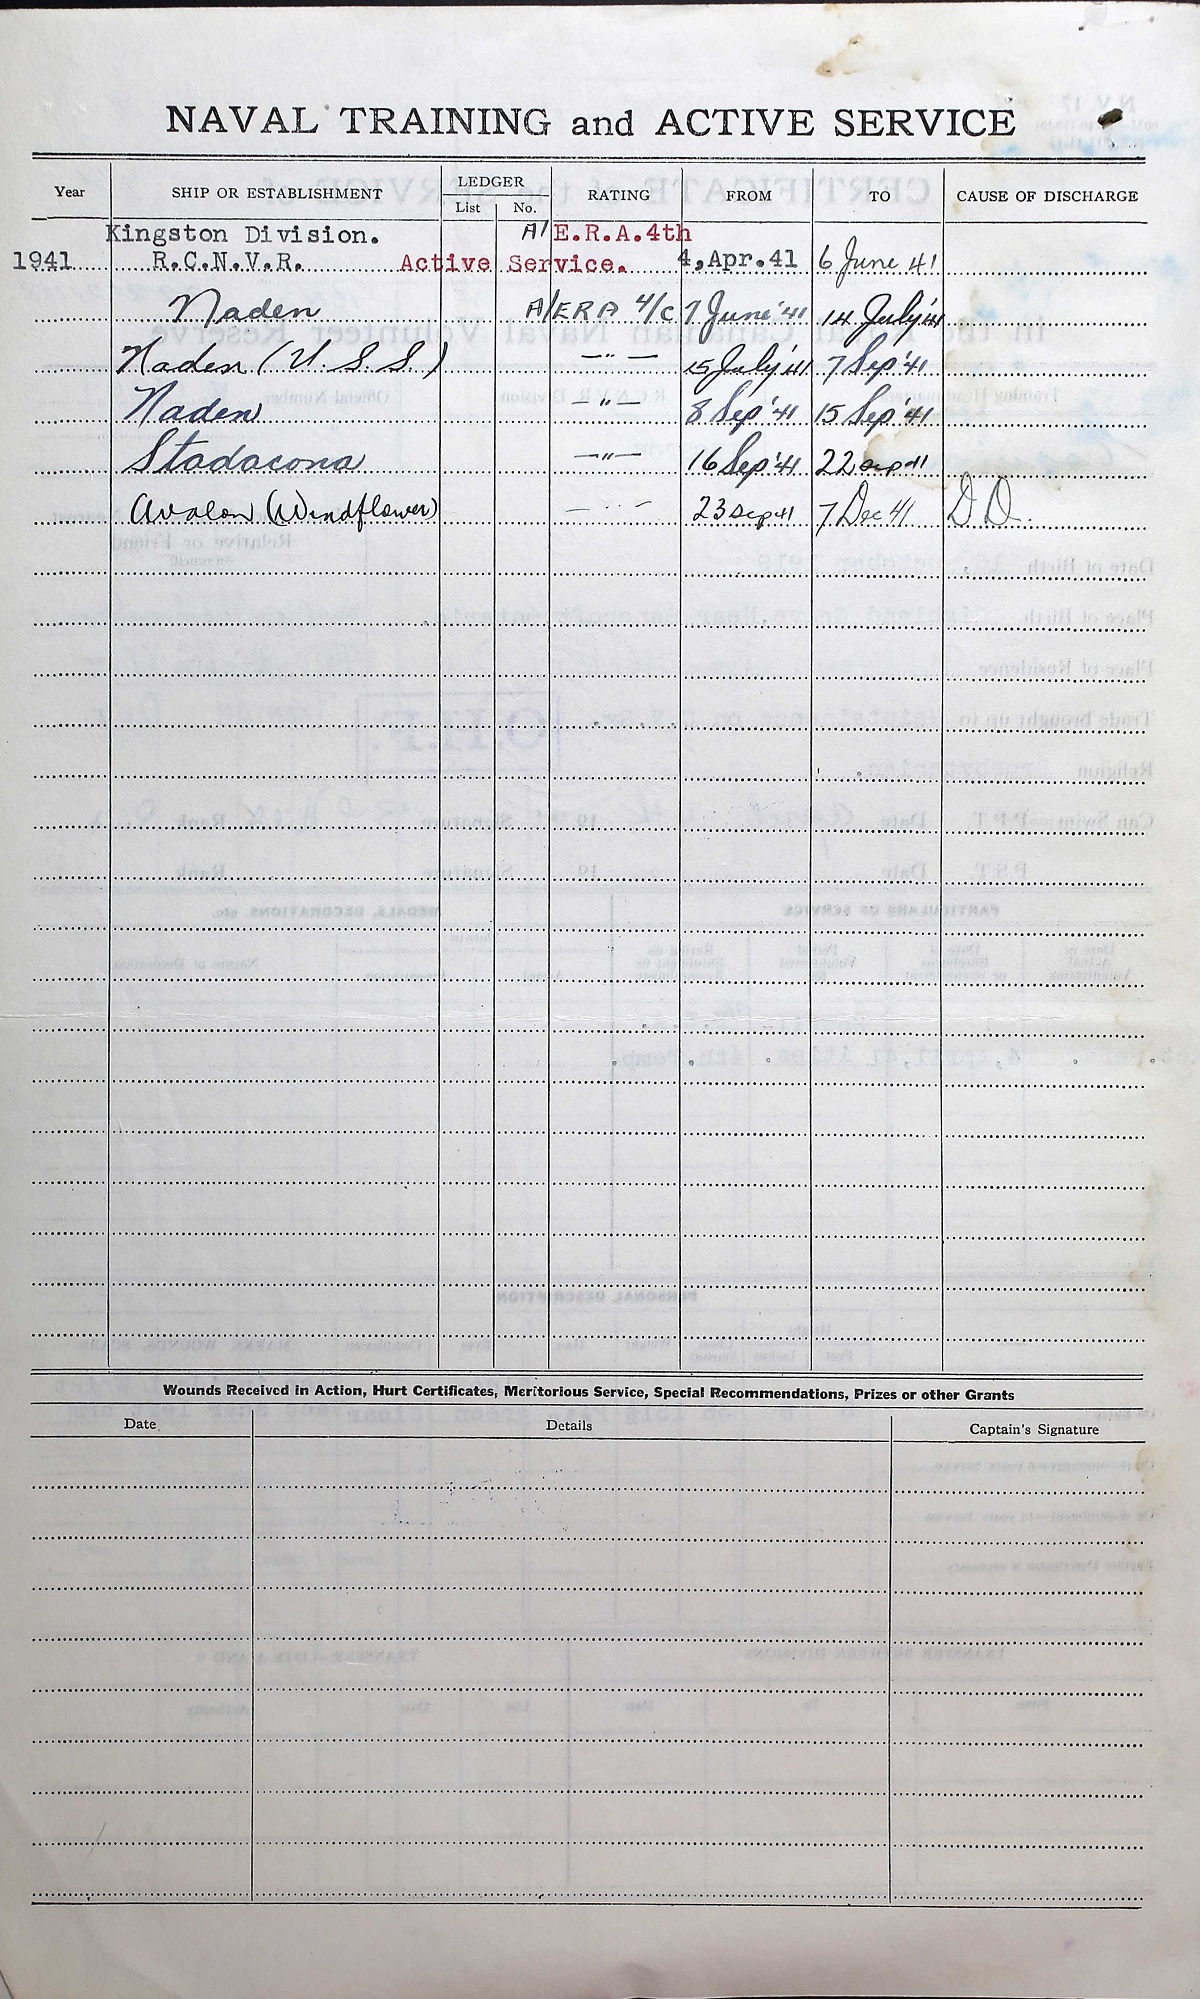 NAVAL TRAINING and ACTIVE SERVICE
Year SHIP OR ESTABLISHMENT LEDGER List No. RATING FROM TO CAUSE OF DISCHARGE
Kingston Division. A/ E.R.A.4th
1941 R.C.N.V.R. Active Service. 4,Apr.41 6 June 41
Naden A/ERA 4/C 7 June '41 14 July '41
Naden (U.S.S.) —"— 15 July '41 7 Sep '41
Naden —"— 8 Sep '41 15 Sep '41
Stadacona —"— 16 Sep '41 22 Sep 41
Avalon (Windflower) —"— 23 Sep 41 7 Dec 41 D D.
Wounds Received in Action, Hurt Certificates, Meritorious Service, Special Recommendations, Prizes or other Grants
Date Details Captain's Signature